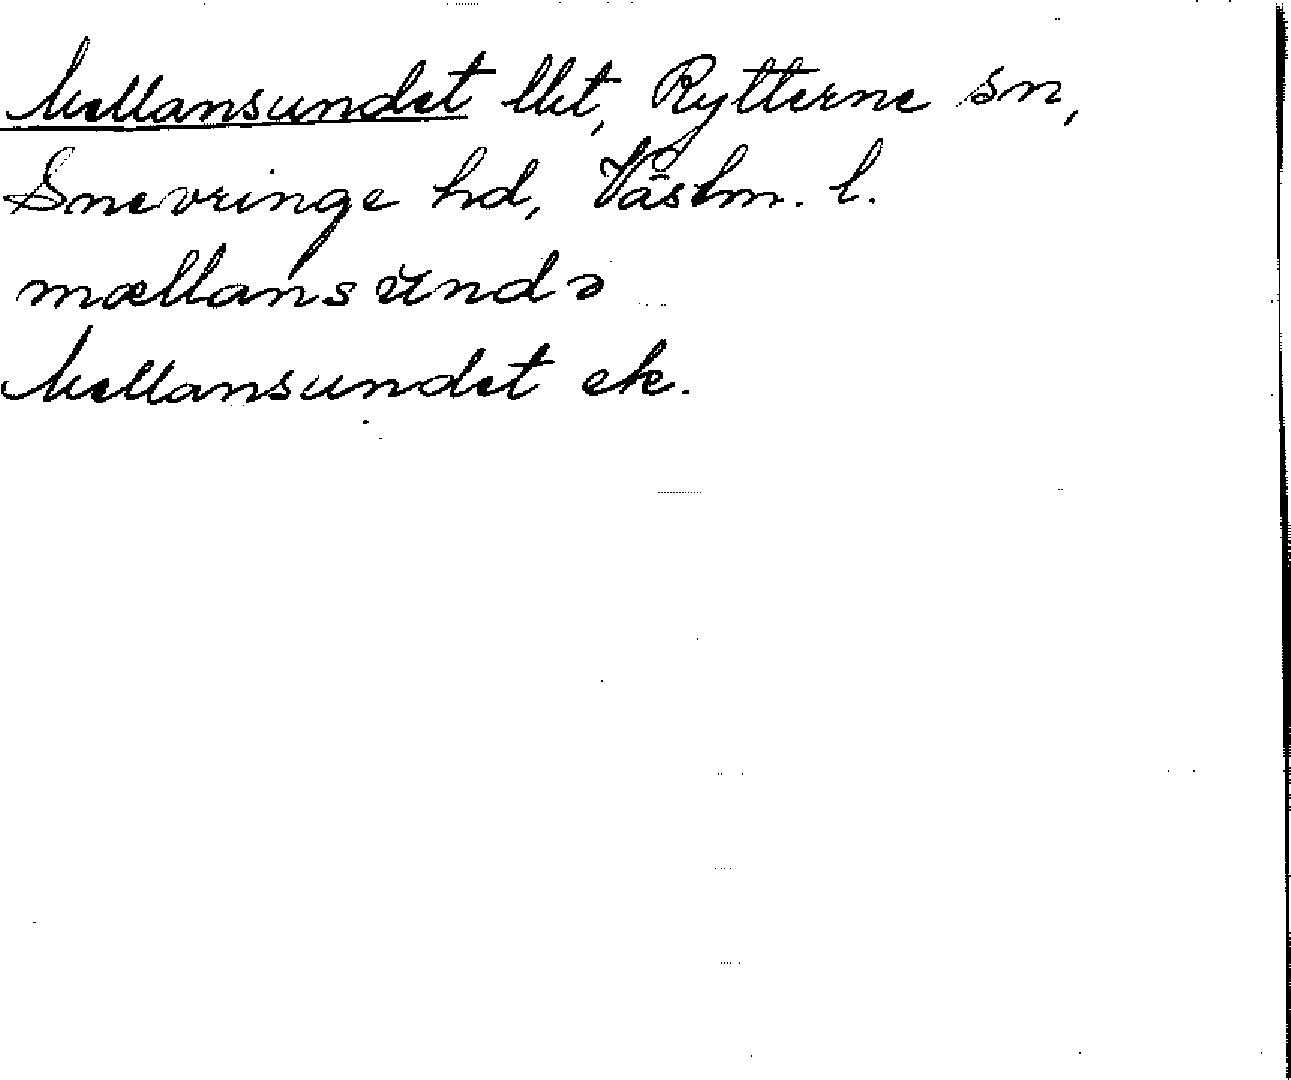 Mellansundet llt, Rytterne sn,
Snevringe hd, Västm. l.
mællansŭndə
Mellansundet ek.